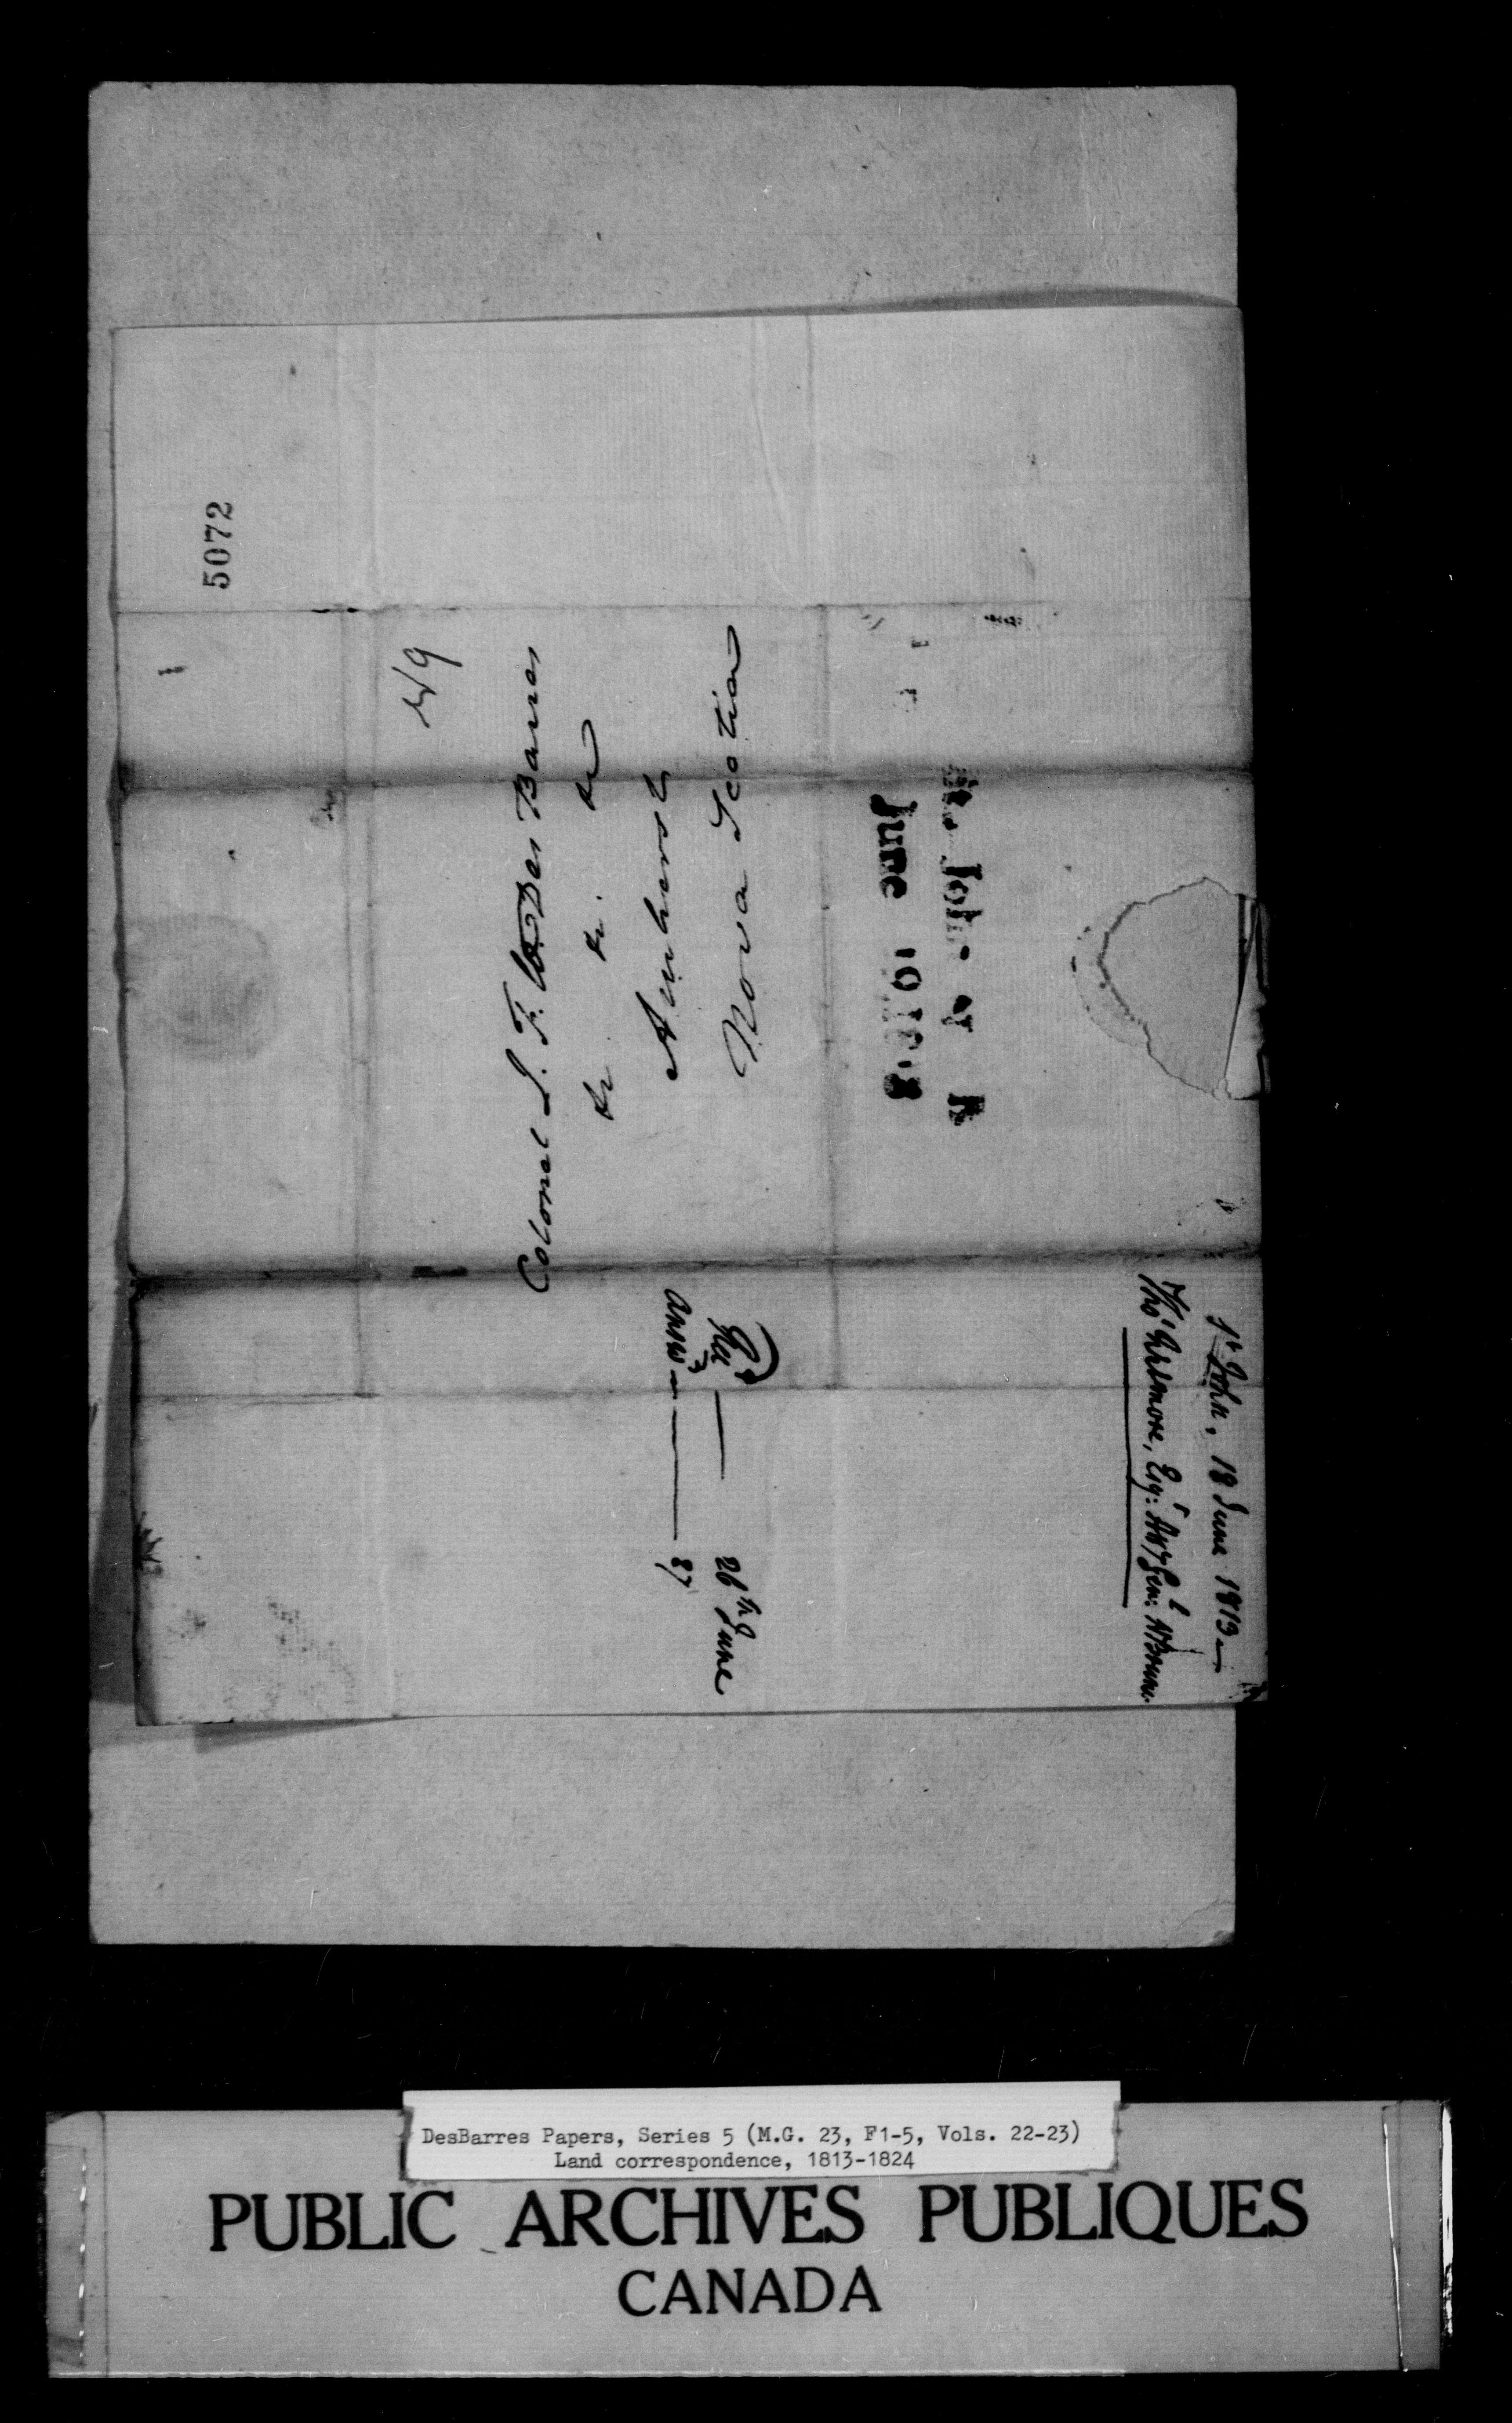 5072
Colonel J. F. W Des Barres
&c. &c. &c
Amherst
Nova Scotia
St. John N B
June 19 1813
St John, 18 June 1813 —
Thos Wetmore, Esqr. Atty Genl. N Brunsw.
Recd — 26th June
Answd — 27
DesBarres Papers, Series 5 (M.G. 23, F1-5, Vols. 22-23)
Land correspondence, 1813-1824
PUBLIC ARCHIVES PUBLIQUES
CANADA